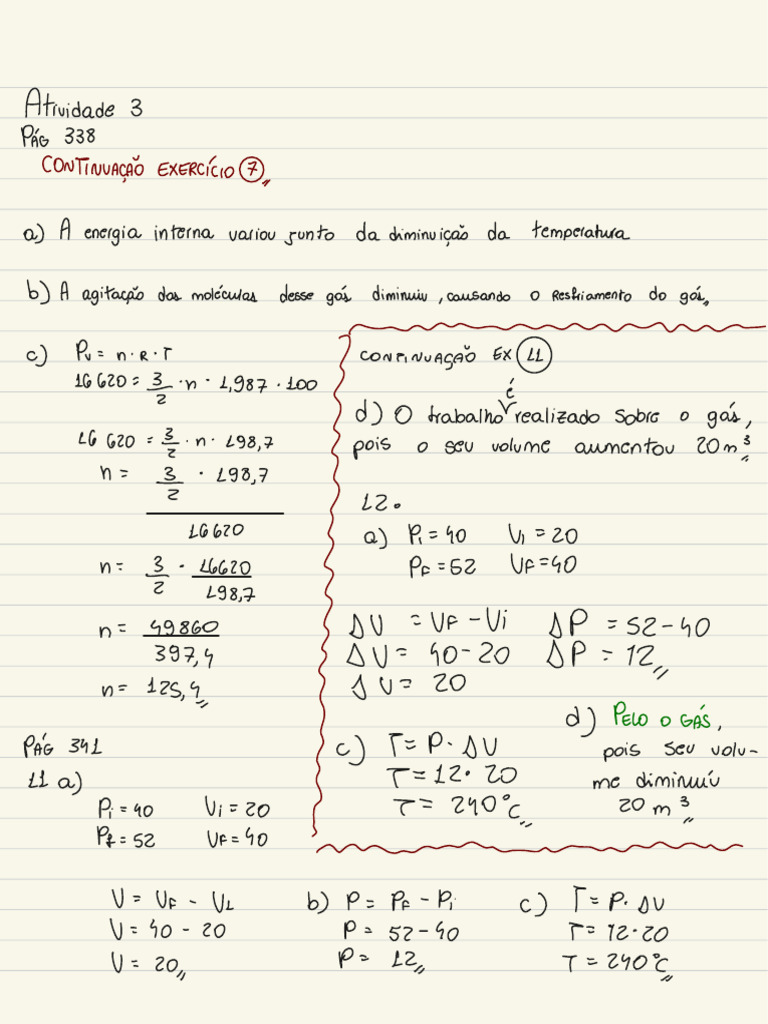 Atividade 3
PÁG 338
CONTINUAÇÃO EXERCÍCIO 7
a) A energia interna variou junto da diminuição da temperatura
b) A agitação das moléculas desse gás diminuiu, causando o resfriamento do gás
c) Pv = n · R · T
16620 = 3/2 · n · 1,987 · 100
16620 = 3/2 · n · 198,7
n = 3/2 · 198,7
16620
n = 3/2 · 16620/198,7
n = 49860/397,4
n = 125,4
PÁG 341
11 a)
Pi = 40 Vi = 20
Pf = 52 VF = 40
V = VF - V1
V = 40 - 20
V = 20
b) P = PF - Pi
P = 52 - 40
P = 12
c) T = P · ΔV
T = 12 · 20
T = 240°C
CONTINUAÇÃO EX 11
d) O trabalho é realizado sobre o gás,
pois o seu volume aumentou 20 m³
12.
a) Pi = 40 Vi = 20
PF = 52 VF = 40
ΔV = VF - Vi ΔP = 52 - 40
ΔV = 40 - 20 ΔP = 12
ΔV = 20
c) T = P · ΔV
T = 12 · 20
T = 240°C
d) PELO O GÁS,
pois seu volu-
me diminuiu
20 m³